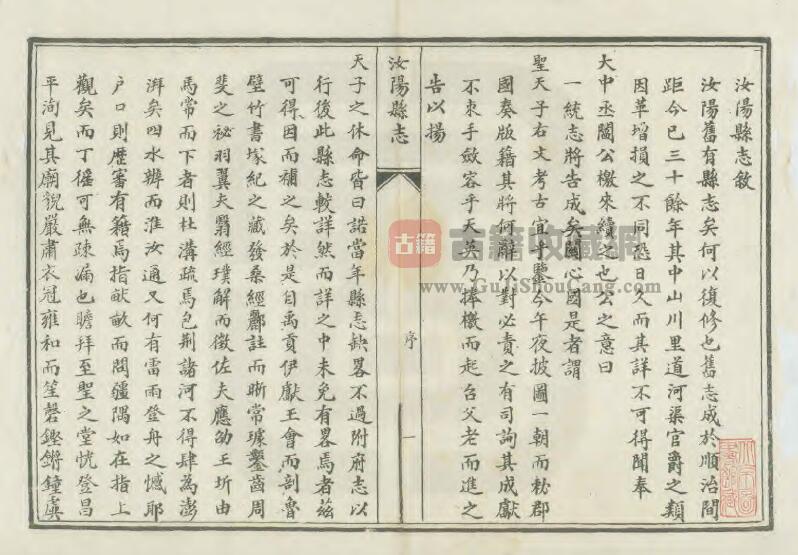 汝陽縣志敘
汝陽舊有縣志矣何以復修也舊志成於順治間
距今已三十餘年其中山川里道河渠官爵之類
因革增損之不同恐日久而其詳不可得聞奉
大中丞閻公檄來續之也公之意曰
一統志將告成矣關心國是者謂
聖天子右文考古宜乎鑒今午夜披圖一朝而勑郡
國奏版籍其將何辭以對必責之有司詢其成獻
不束手斂容乎天英乃捧檄而起召父老而進之
告以揚
汝陽縣志
序
一
天子之休命皆曰諾當年縣志缺畧不過附府志以
行後此縣志較詳然而詳之中未免有畧焉者茲
可得因而補之矣於是自禹貢伊獻王會而剖魯
壁竹書塚紀之藏發桑經酈註而晰常璩鑿齒周
斐之祕羽翼夫翳經璞解而徵佐夫應劭王圻由
馬常而下者則杜溝疏焉包荆諸河不得肆為澎
湃矣四水辨而淮汝通又何有雷雨登舟之憾耶
户口則歷審有籍焉指畝畝而問疆隅如在指上
觀矣而丁徭可無疎漏也瞻拜至聖之堂恍登昌
平洵見其廟貌嚴肅衣冠雍和而笙磬鏗鏘鐘虡
古籍收藏網
www.GuJiShouCang.com